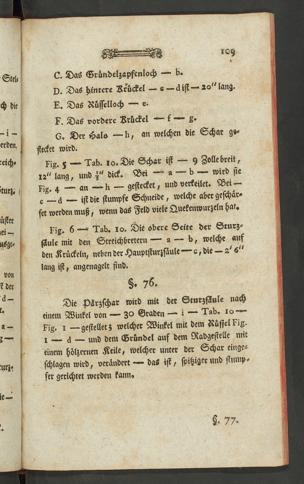 109
C. Das Gründelzapfenloch — b.
D. Das hintere Krückel — c — d ist — 20" lang.
E. Das Nüsselloch — e.
F. Das vordere Krückel — f — g.
G. Der Hals — h, an welchen die Schar ge-
steckt wird.
Fig. 5 — Tab. 10. Die Schar ist — 9 Zolle breit,
12" lang, und dick. Bei — a — b — wird sie
Fig. 4 — an — h — gesteckt, und verkeilet. Bei —
c — d — ist die stumpfe Schneide, welche aber geschär-
fet werden muß, wenn das Feld viele Queckenwurzeln hat.
Fig. 6 — Tab. 10. Die obere Seite der Sturz-
säule mit den Streichbrettern — a — b, welche auf
den Krückeln, neben der Hauptsturzsäule — c, die — 2' 6"
lang ist, angenagelt sind.
§. 76.
Die Pärzschar wird mit der Sturzsäule nach
einem Winkel von — 30 Graden — i — Tab. 10 —
Fig. 1 — gestellet; welcher Winkel mit dem Rüssel Fig.
1 — d — und dem Gründel auf dem Radgestelle mit
einem hölzernen Keile, welcher unter der Schar einge-
schlagen wird, verändert — das ist, spitziger und stump-
fer gerichtet werden kann.
§. 77.